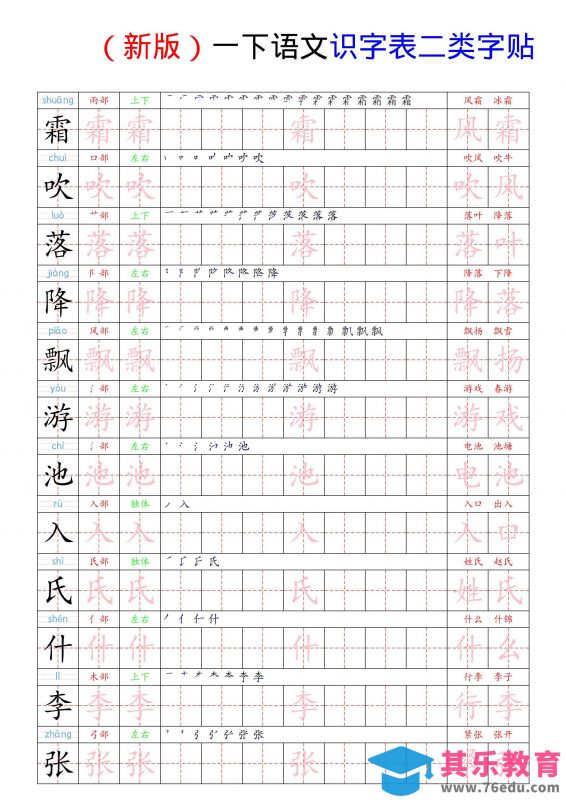 （新版）一下语文识字表二类字贴
shuāng 雨部 上下 风霜 冰霜
霜 霜 霜 霜 风 霜
chuī 口部 左右 吹风 吹牛
吹 吹 吹 吹 吹 风
luò 艹部 上下 落叶 降落
落 落 落 落 落 叶
jiàng 阝部 左右 降落 下降
降 降 降 降 降 落
piāo 风部 左右 飘扬 飘雪
飘 飘 飘 飘 飘 扬
yóu 氵部 左右 游戏 春游
游 游 游 游 游 戏
chí 氵部 左右 电池 池塘
池 池 池 池 电 池
rù 入部 独体 丿 入 入口 出入
入 入 入 入 入 口
shì 氏部 独体 姓氏 赵氏
氏 氏 氏 氏 姓 氏
shén 亻部 左右 什么 什锦
什 什 什 什 什 么
lǐ 木部 上下 行李 李子
李 李 李 李 行 李
zhāng 弓部 左右 紧张 张开
张 张 张 张
其乐教育
www.76edu.com